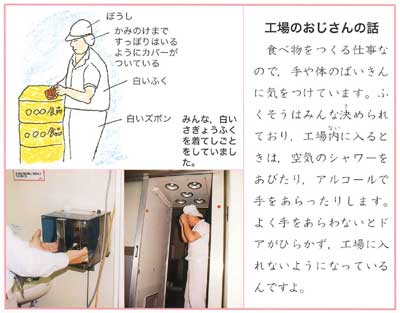 ぼうし
かみのけまで
すっぽりはいる
ようにカバーが
ついている
白いふく
白いズボン
みんな，白い
さぎょうふく
を着てしごと
をしていまし
た。
工場のおじさんの話
食べ物をつくる仕事な
ので，手や体のばいきん
に気をつけています。ふ
くそうはみんな決められ
ており，工場内に入ると
きは，空気のシャワーを
あびたり，アルコールで
手をあらったりします。
よく手をあらわないとド
アがひらかず，工場に入
れないようになっている
んですよ。